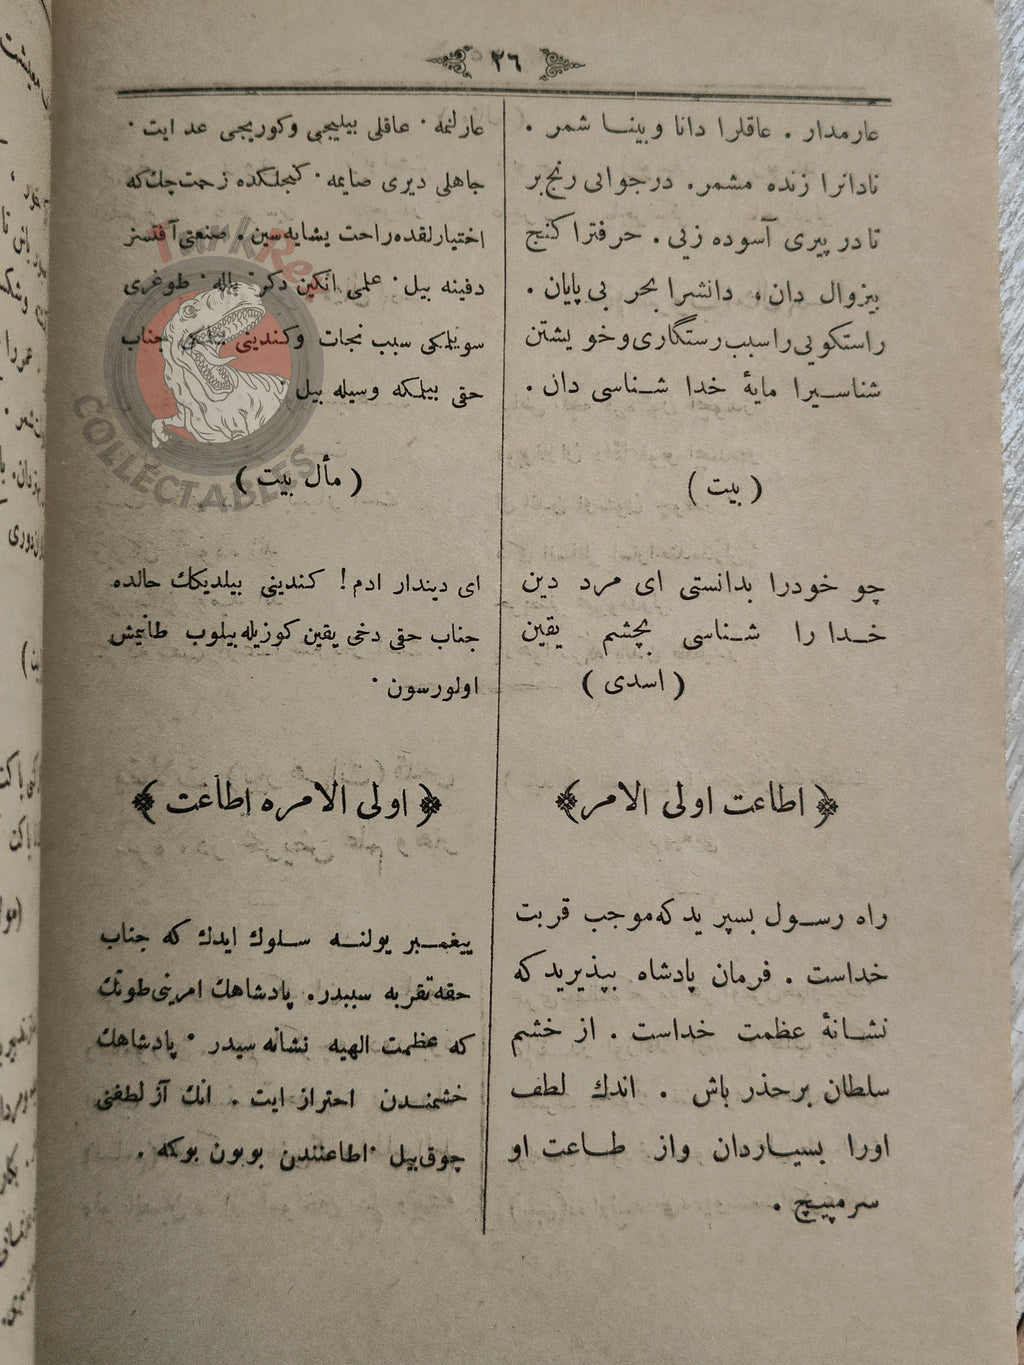 ٢٦
عارمدار . عاقلرا دانا وبینا شمر .
نادانرا زنده مشمر. درجوانی رنج بر
تا در پیری آسوده زیی . حرفترا کنج
بیزوال دان، دانشرا بحر بی پایان .
راستکویی را سبب رستگاری و خویشتن
شناسیرا مایهٔ خدا شناسی دان .
( بیت )
چو خودرا بدانستی ای مرد دین
خدا را شناسی بچشم یقین
( اسدی )
﴿ اطاعت اولی الامر ﴾
راه رسول بسپرید که موجب قربت
خداست . فرمان پادشاه بپذیرید که
نشانهٔ عظمت خداست . از خشم
سلطان برحذر باش . اندك لطف
اورا بسیاردان واز طاعت او
سرمپیچ .
عارلنمه . عاقلی بیلیجی وکوریجی عد ایت .
جاهلی دیری صایمه . کنجلکده زحمت چك که
اختیارلقده راحت یشایه سین . صنعتی آفتسز
دفینه بیل . علمی انکین دکز . طوغری
سویلمکی سبب نجات وکندینی بیلمکی جناب
حقی بیلمکه وسیله بیل .
( مأل بیت )
ای دیندار ادم! کندینی بیلدیکك حالده
جناب حقی دخی یقین کوزیله بیلوب طانیمش
اولورسون .
﴿ اولی الامره اطاعت ﴾
پیغمبر یولنه سلوك ایدك که جناب
حقه تقربه سببدر. پادشاهك امرینی طوتك
که عظمت الهیه نشانه سیدر . پادشاهك
خشمندن احتراز ایت . انك آز لطفنی
چوق بیل . اطاعتندن بویون بوکمه .
TurkRex
COLLECTABLES